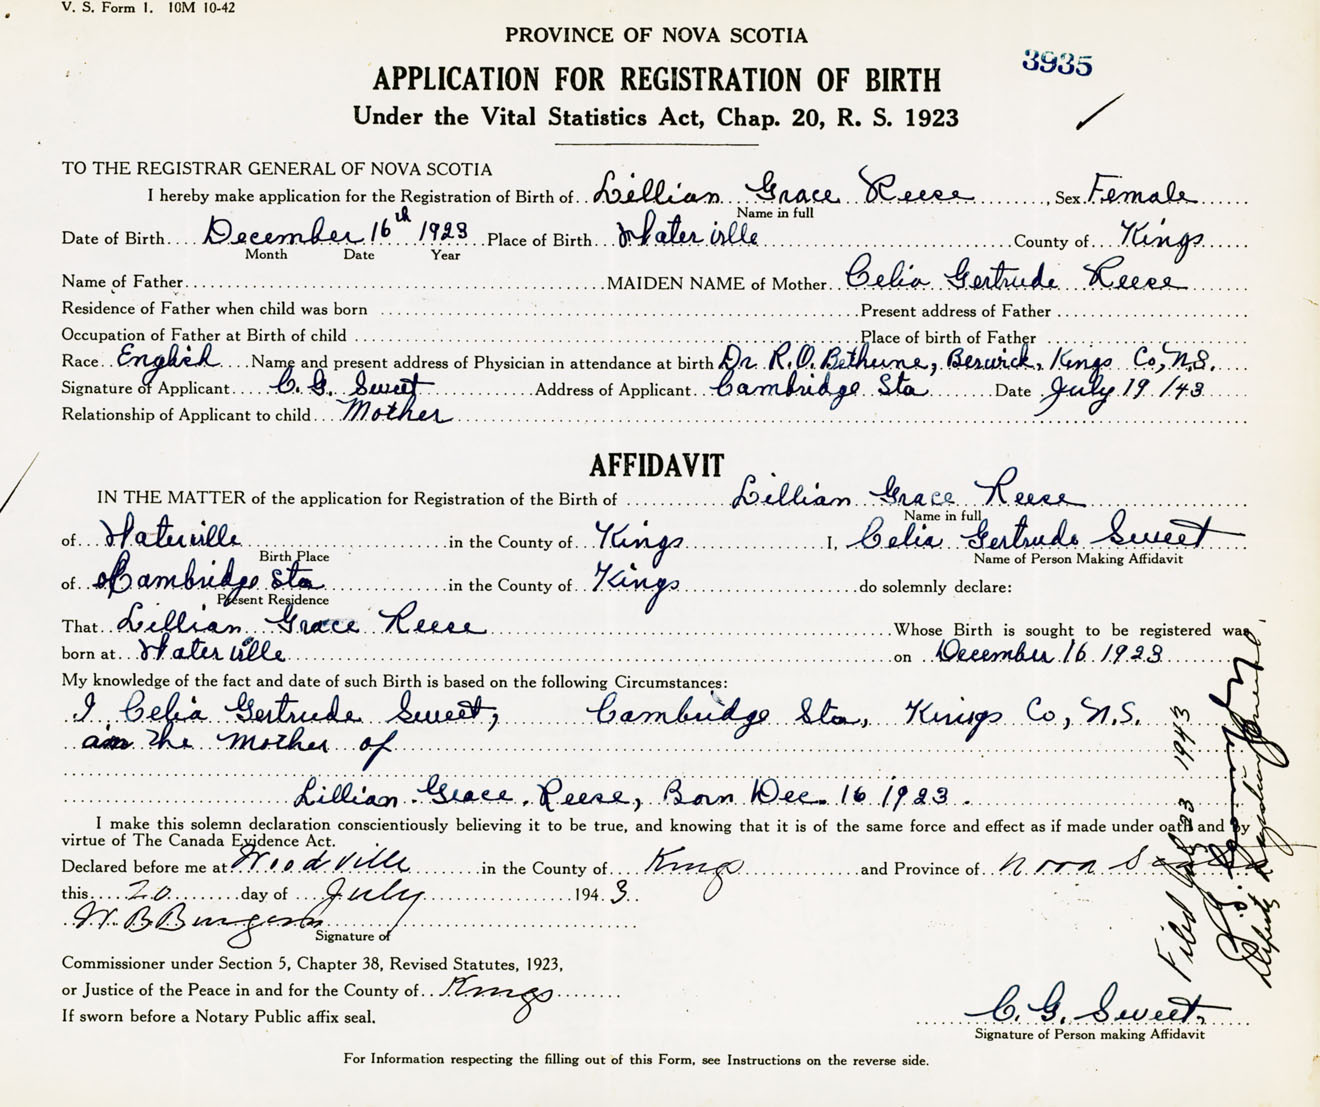 V. S. Form 1. 10M 10-42
PROVINCE OF NOVA SCOTIA
3935
APPLICATION FOR REGISTRATION OF BIRTH
Under the Vital Statistics Act, Chap. 20, R. S. 1923
TO THE REGISTRAR GENERAL OF NOVA SCOTIA
I hereby make application for the Registration of Birth of Lillian Grace Reese, Sex Female
Name in full
Date of Birth December 16th 1923 Place of Birth Waterville County of Kings
Month Date Year
Name of Father MAIDEN NAME of Mother Celia Gertrude Reese
Residence of Father when child was born Present address of Father
Occupation of Father at Birth of child Place of birth of Father
Race English Name and present address of Physician in attendance at birth Dr. R. O. Bethune, Berwick, Kings Co, N.S.
Signature of Applicant C. G. Sweet Address of Applicant Cambridge Sta Date July 19/43
Relationship of Applicant to child Mother
AFFIDAVIT
IN THE MATTER of the application for Registration of the Birth of Lillian Grace Reese
Name in full
of Waterville in the County of Kings I, Celia Gertrude Sweet
Birth Place Name of Person Making Affidavit
of Cambridge Sta in the County of Kings do solemnly declare:
Present Residence
That Lillian Grace Reese Whose Birth is sought to be registered was
born at Waterville on December 16 1923
My knowledge of the fact and date of such Birth is based on the following Circumstances:
I, Celia Gertrude Sweet, Cambridge Sta, Kings Co, N.S.
am the Mother of
Lillian Grace Reese, Born Dec. 16 1923.
I make this solemn declaration conscientiously believing it to be true, and knowing that it is of the same force and effect as if made under oath and by
virtue of The Canada Evidence Act.
Declared before me at Woodville in the County of Kings and Province of Nova Scotia
this 20 day of July 1943.
W. B. Burgess
Signature of
Commissioner under Section 5, Chapter 38, Revised Statutes, 1923,
or Justice of the Peace in and for the County of Kings
If sworn before a Notary Public affix seal.
C. G. Sweet
Signature of Person making Affidavit
For Information respecting the filling out of this Form, see Instructions on the reverse side.
Filed July 23 1943
Deputy Registrar General